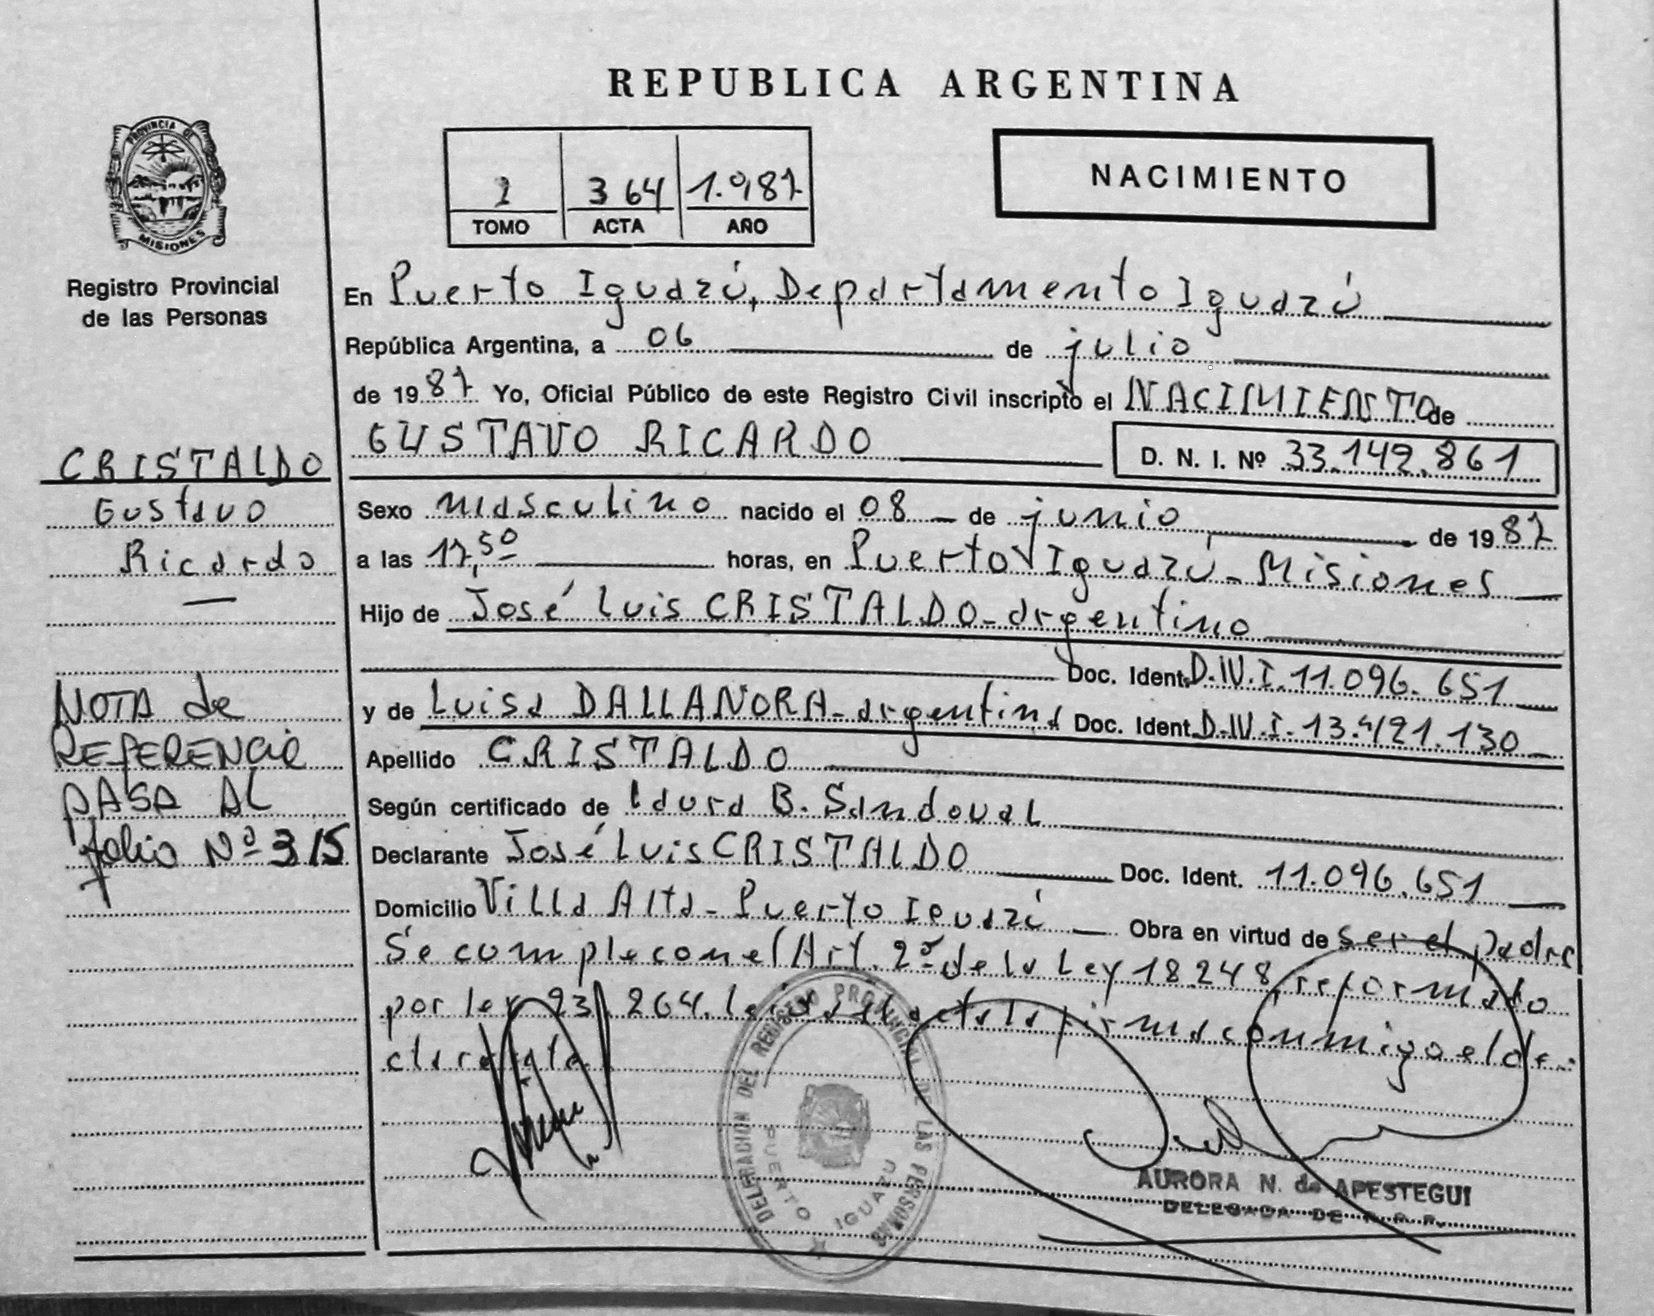 REPUBLICA ARGENTINA
PROVINCIA DE
MISIONES
Registro Provincial
de las Personas
2 364 1.987
TOMO ACTA AÑO
NACIMIENTO
En Puerto Iguazú, Departamento Iguazú
República Argentina, a 06 de julio
de 1987 Yo, Oficial Público de este Registro Civil inscripto el NACIMIENTO de
GUSTAVO RICARDO D. N. I. Nº 33.149.861
CRISTALDO
Gustavo
Ricardo
Sexo masculino nacido el 08 de junio de 1987
a las 17,50 horas, en Puerto Iguazú - Misiones
Hijo de José Luis CRISTALDO - argentino
Doc. Ident. D.N.I. 11.096.651
y de Luisa DALLANORA - argentina Doc. Ident. D.N.I. 13.421.130
Apellido CRISTALDO
Según certificado de Laura B. Sandoval
Declarante José Luis CRISTALDO Doc. Ident. 11.096.651
Domicilio Villa Alta - Puerto Iguazú Obra en virtud de ser el padre
Se cumple con el Art. 2º de la Ley 18.248 reformado
por ley 23.264. el acta la firma conmigo el de-
clarante
NOTA de
REFERENCIA
PASA AL
folio Nº 315
DELEGACION DEL REGISTRO PROVINCIAL DE LAS PERSONAS
PUERTO IGUAZU
AURORA N. de APESTEGUI
DELEGADA DE R.P.P.